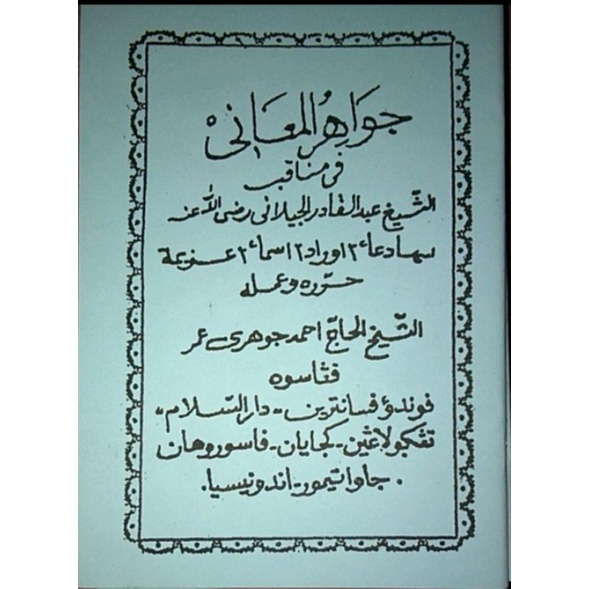 جواهر المعانى
فى مناقب
الشّيخ عبد القادر الجيلانى رضى اللّه عنه
سها دعاء٢ اوراد٢ اسماء٢ عزيمة
حرّره وعمله
الشّيخ الحاجّ احمد جوهرى عمر
ڤڠاسوه
ڤوندؤ ڤسانترين - دار السّلام -
تڠكولاڠين - كجايان - ڤاسوروهان
. جاوا تيمور - اندونيسيا .